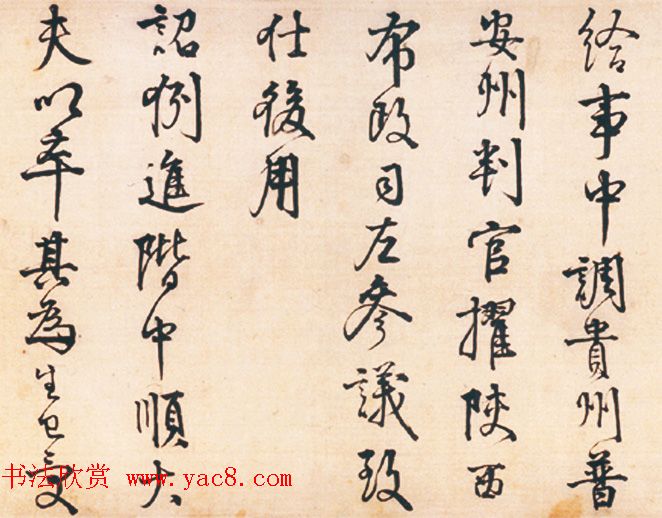 给事中調貴州普
安州判官擢陝西
布政司左參議致
仕後用
詔例進階中順大
夫以卒其為生也
书法欣赏 www.yac8.com